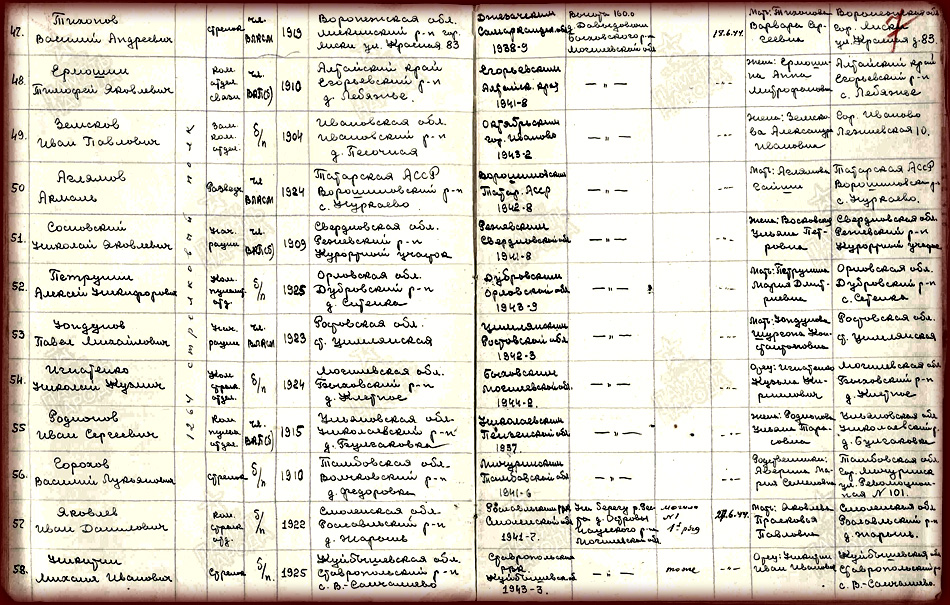 7
47. Тихонов Василий Андреевич стрелок чл. ВЛКСМ 1919 Воронежская обл. Лискинский р-н гор. Лиски ул. Красная 83 Самаркандской 1938-9 Высота 160.0 Быховского р-н Могилевской обл. Мать: Тихонова Варвара Воронежская обл. гор. Лиски ул. Красная д. 83
48. Ермошин Тимофей Яковлевич ком. отдел. связи чл. ВКП(б) 1910 Алтайский край Егорьевский р-н д. Лебяжье. Егорьевским Алтайск. край 1941-8 — " — --- Жена: Ермошина Анна Митрофановна Алтайский край Егорьевский р-н с. Лебяжье
49. Земсков Иван Павлович Зам. ком. отдел. б/п 1904 Ивановская обл. Ивановский р-н д. Песочная Октябрьским гор. Иваново 1943-2 — " — --- Жена: Земскова Александра Ивановна Гор. Иваново 10.
50 Аглямов разведч. чл ВЛКСМ 1924 Татарская АССР Ворошиловский р-н с. Нуркаево. Ворошиловским Татар. АССР 1942-8 — " — --- Мать: Аглямова Татарская АССР Ворошиловский р- с. Нуркаево.
51. Сосновский Николай Яковлевич Нач. рации чл. ВКП(б) 1909 Свердловская обл. Режевский р-н Курортный участок Режевским Свердловской обл 1941-8 — " — --- Жена: Ульяна Петровна Свердловская обл. Режевский р-н Курортный участок
52. Петрушин Алексей Никифорович Ком. пулем. отд. б/п 1925 Орловская обл. Дубровский р-н д. Сетенка Дубровским Орловской обл 1943-9 — " — --- Мать: Петрушина Мария Дмитриевна Орловская обл. Дубровский р-н с. Сетенка
53 Павел Михайлович Нач. рации чл. ВЛКСМ 1923 Ростовская обл. ст. Цимлянская Цимлянским Ростовской обл 1942-3 — " — --- Мать: Ростовская обл. ст. Цимлянская
54. Игнатенко Николай Кузьмич Ком стрелк отдел. б/п 1924 Могилевская обл. Быховский р-н д. Клетное Быховским Могилевской обл. 1944-2. — " — --- Отец: Игнатенко Кузьма Кириллович Могилевская обл. Быховский р-н д. Клетное
55 Родионов Иван Сергеевич Ком. пулем. отдел. чл. ВКП(б) 1915 Ульяновская обл. Николаевский р-н д. Булгаковка Николаевским Пензенской обл 1937. — " — --- Жена: Родионова Тарасовна Ульяновская обл Николаевский р-н. д. Булгаковка
56. Горохов Василий Лукьянович стрелок б/п 1910 Тамбовская обл. Волковский р-н д. Федоровка Мичуринским Тамбовской обл 1941-6 — " — --- Родственники: Аверина Мария Семеновна Тамбовская обл. Гор. Мичуринск ул. Революционная № 101.
57 Яковлев Иван Данилович ком. стрелк отд. б/п 1922 Смоленская обл. Рославльский р-н д. Жарынь Рославльским рвк Смоленской обл 1941-7. На берегу р. д. Могилевской обл могила №1 1й ряд 27.6.44. Мать: Яковлева Прасковья Павловна Смоленская обл Рославльский р-н д. Жарынь.
58. Никитин Михаил Иванович стрелок б/п. 1925 Куйбышевская обл. Ставропольский р-н с. В-Санчелеево Ставропольским рвк Куйбышевской 1943-3. — " — тоже --- Отец: Никитин Иван Иванович Куйбышевская об Ставропольский р- с. В-Санчелеево
1264 стрелковый полк